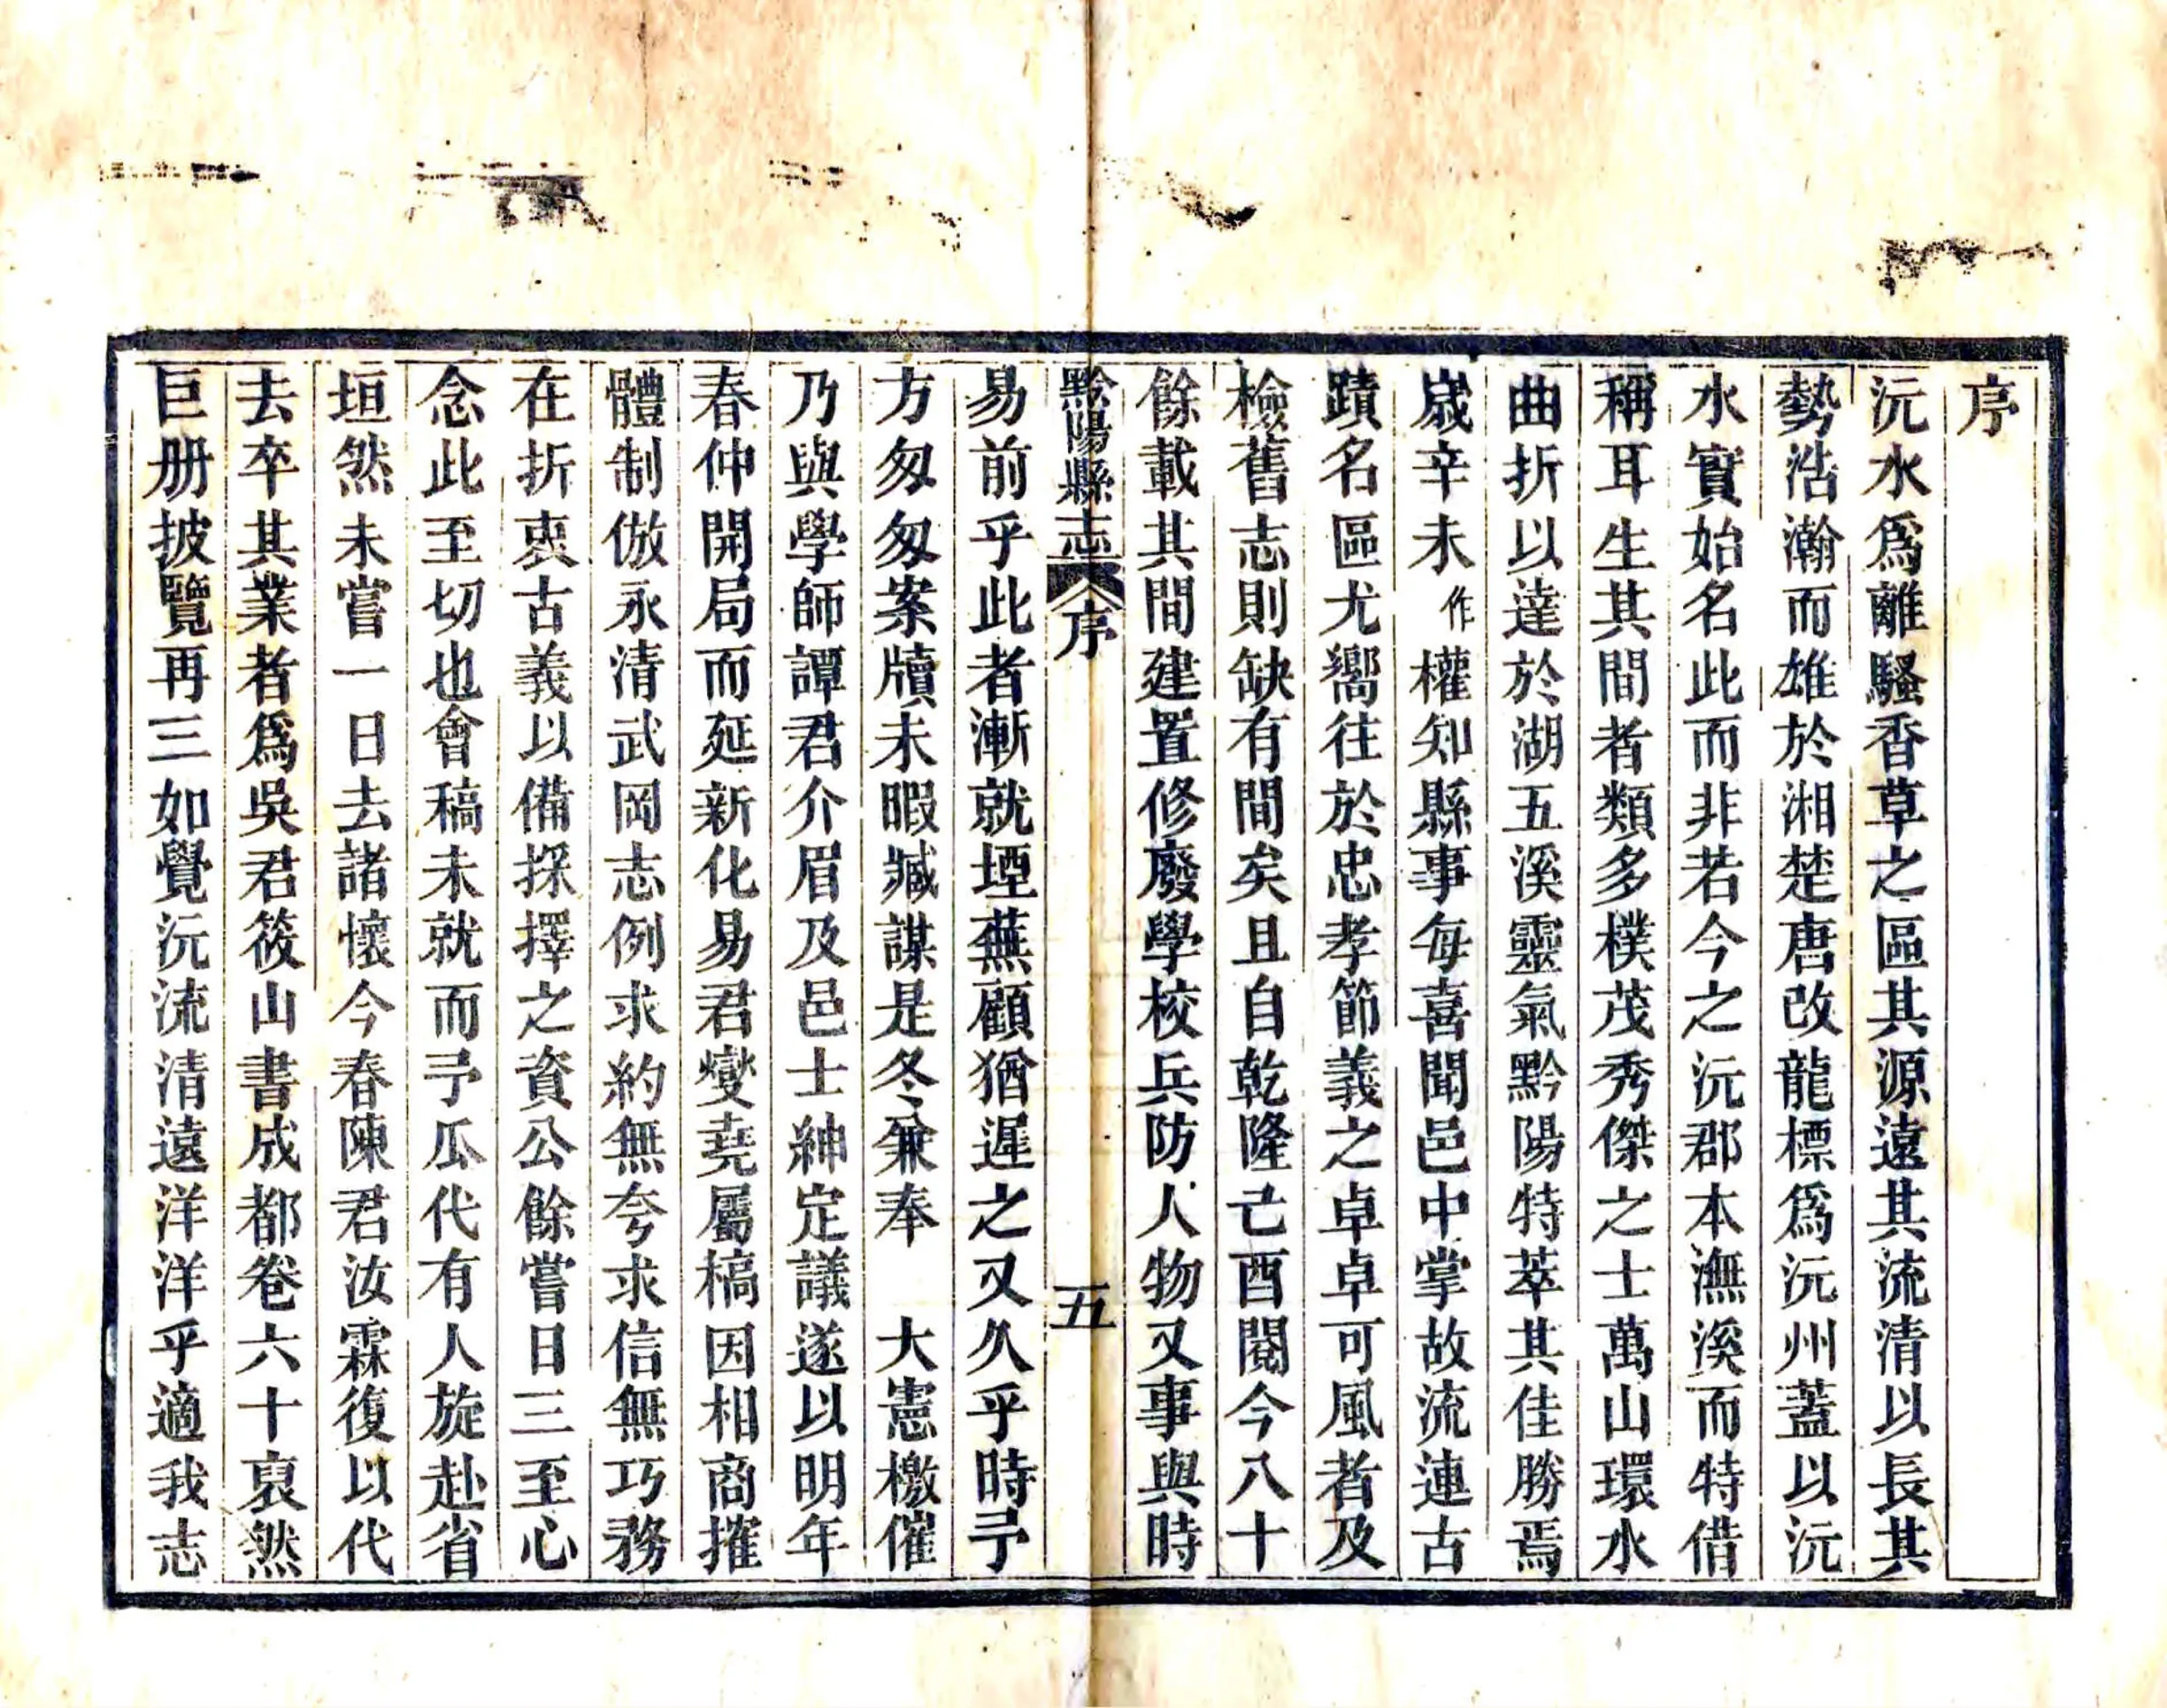 序
沅水爲離騷香草之區其源遠其流清以長其
勢浩瀚而雄於湘楚唐改龍標爲沅州蓋以沅
水實始名此而非若今之沅郡本潕溪而特借
稱耳生其間者類多樸茂秀傑之士萬山環水
曲折以達於湖五溪靈氣黔陽特萃其佳勝焉
歲辛未作權知縣事每喜聞邑中掌故流連古
蹟名區尤嚮往於忠孝節義之卓卓可風者及
檢舊志則缺有間矣且自乾隆己酉閱今八十
餘載其間建置修廢學校兵防人物又事與時
黔陽縣志 序 五
易前乎此者漸就堙蕪顧猶遲之又久乎時予
方匆匆案牘未暇臧謀是冬兼奉 大憲檄催
乃與學師譚君介眉及邑士紳定議遂以明年
春仲開局而延新化易君燮堯屬槁因相商搉
體制倣永清武岡志例求約無夸求信無巧務
在折衷古義以備採擇之資公餘嘗日三至心
念此至切也會稿未就而予瓜代有人旋赴省
垣然未嘗一日去諸懷今春陳君汝霖復以代
去卒其業者爲吳君筱山書成都卷六十裒然
巨册披覽再三如覺沅流清遠洋洋乎適我志